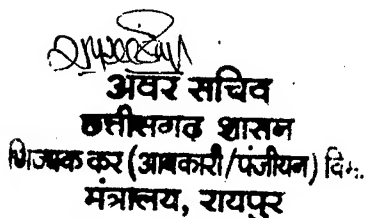 अवर सचिव
छत्तीसगढ़ शासन
कर (आबकारी/पंजीयन)
मंत्रालय, रायपुर